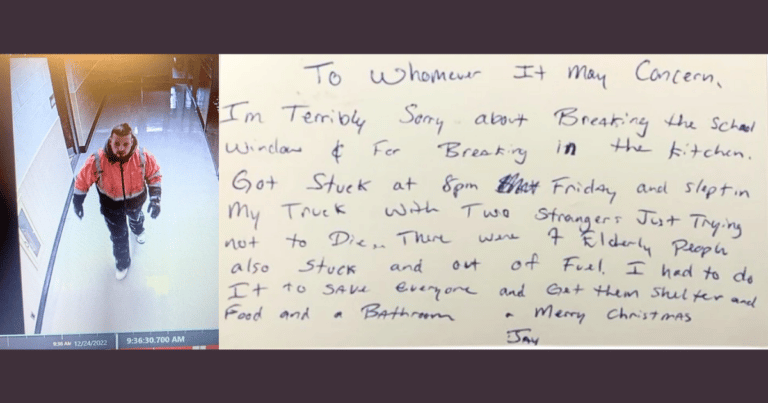 To Whomever It May Concern,
I'm Terribly Sorry about Breaking the School
Window & For Breaking in the Kitchen.
Got Stuck at 8pm Friday and slept in
My Truck with Two Strangers Just Trying
not to Die.. There were 7 Elderly People
also Stuck and out of Fuel. I had to do
It to Save everyone and Get them Shelter and
Food and a Bathroom - Merry Christmas
Jay
9:36 AM 12/24/2022
9:36:30.700 AM